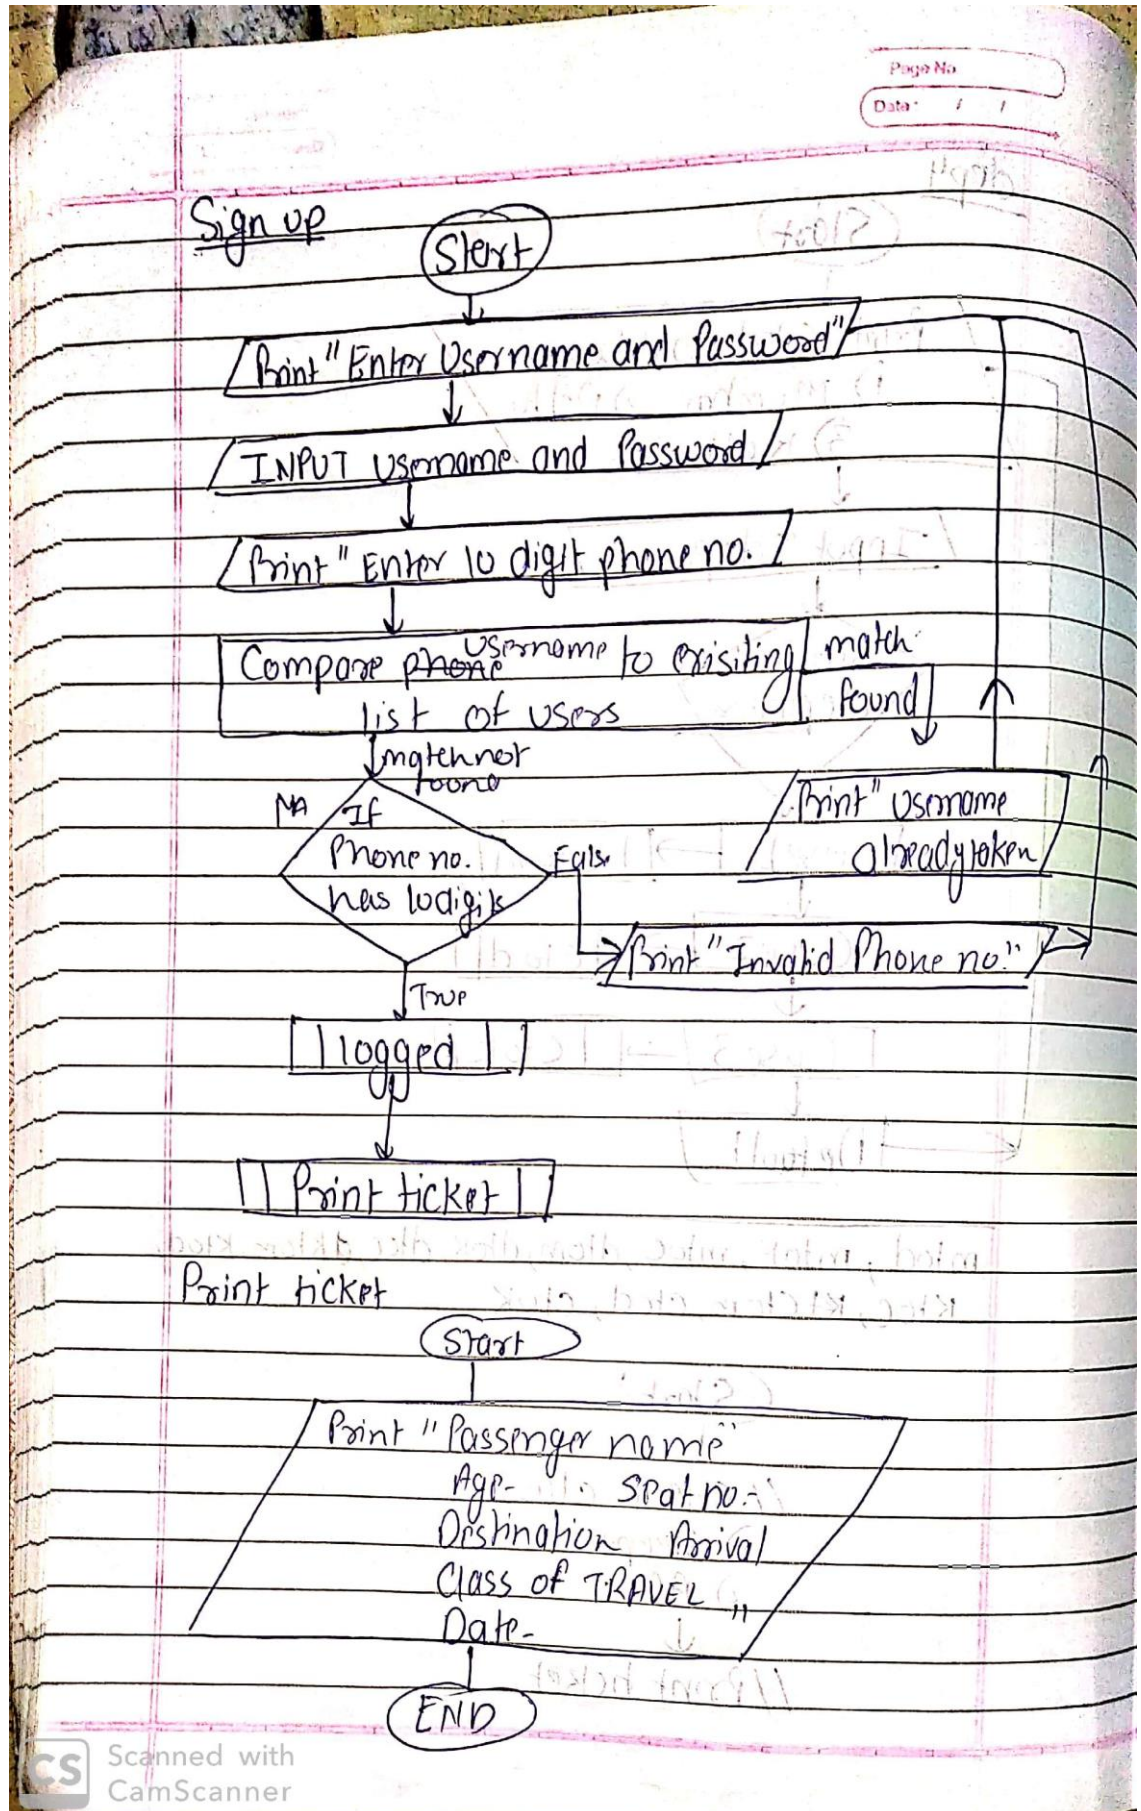 Page No
Date: / /
Sign up
Start
Print "Enter Username and Password"
INPUT Username and Password
Print "Enter 10 digit phone no.
Compare phone username to exisiting
list of users
match
found
match not
found
If
Phone no.
has 10 digits
False
Print "Username
already taken
Print "Invalid Phone no."
True
logged
Print ticket
Print ticket
Start
Print "Passenger name"
Age- Seat no.-
Destination Arrival
Class of TRAVEL "
Date-
END
CS
Scanned with
CamScanner